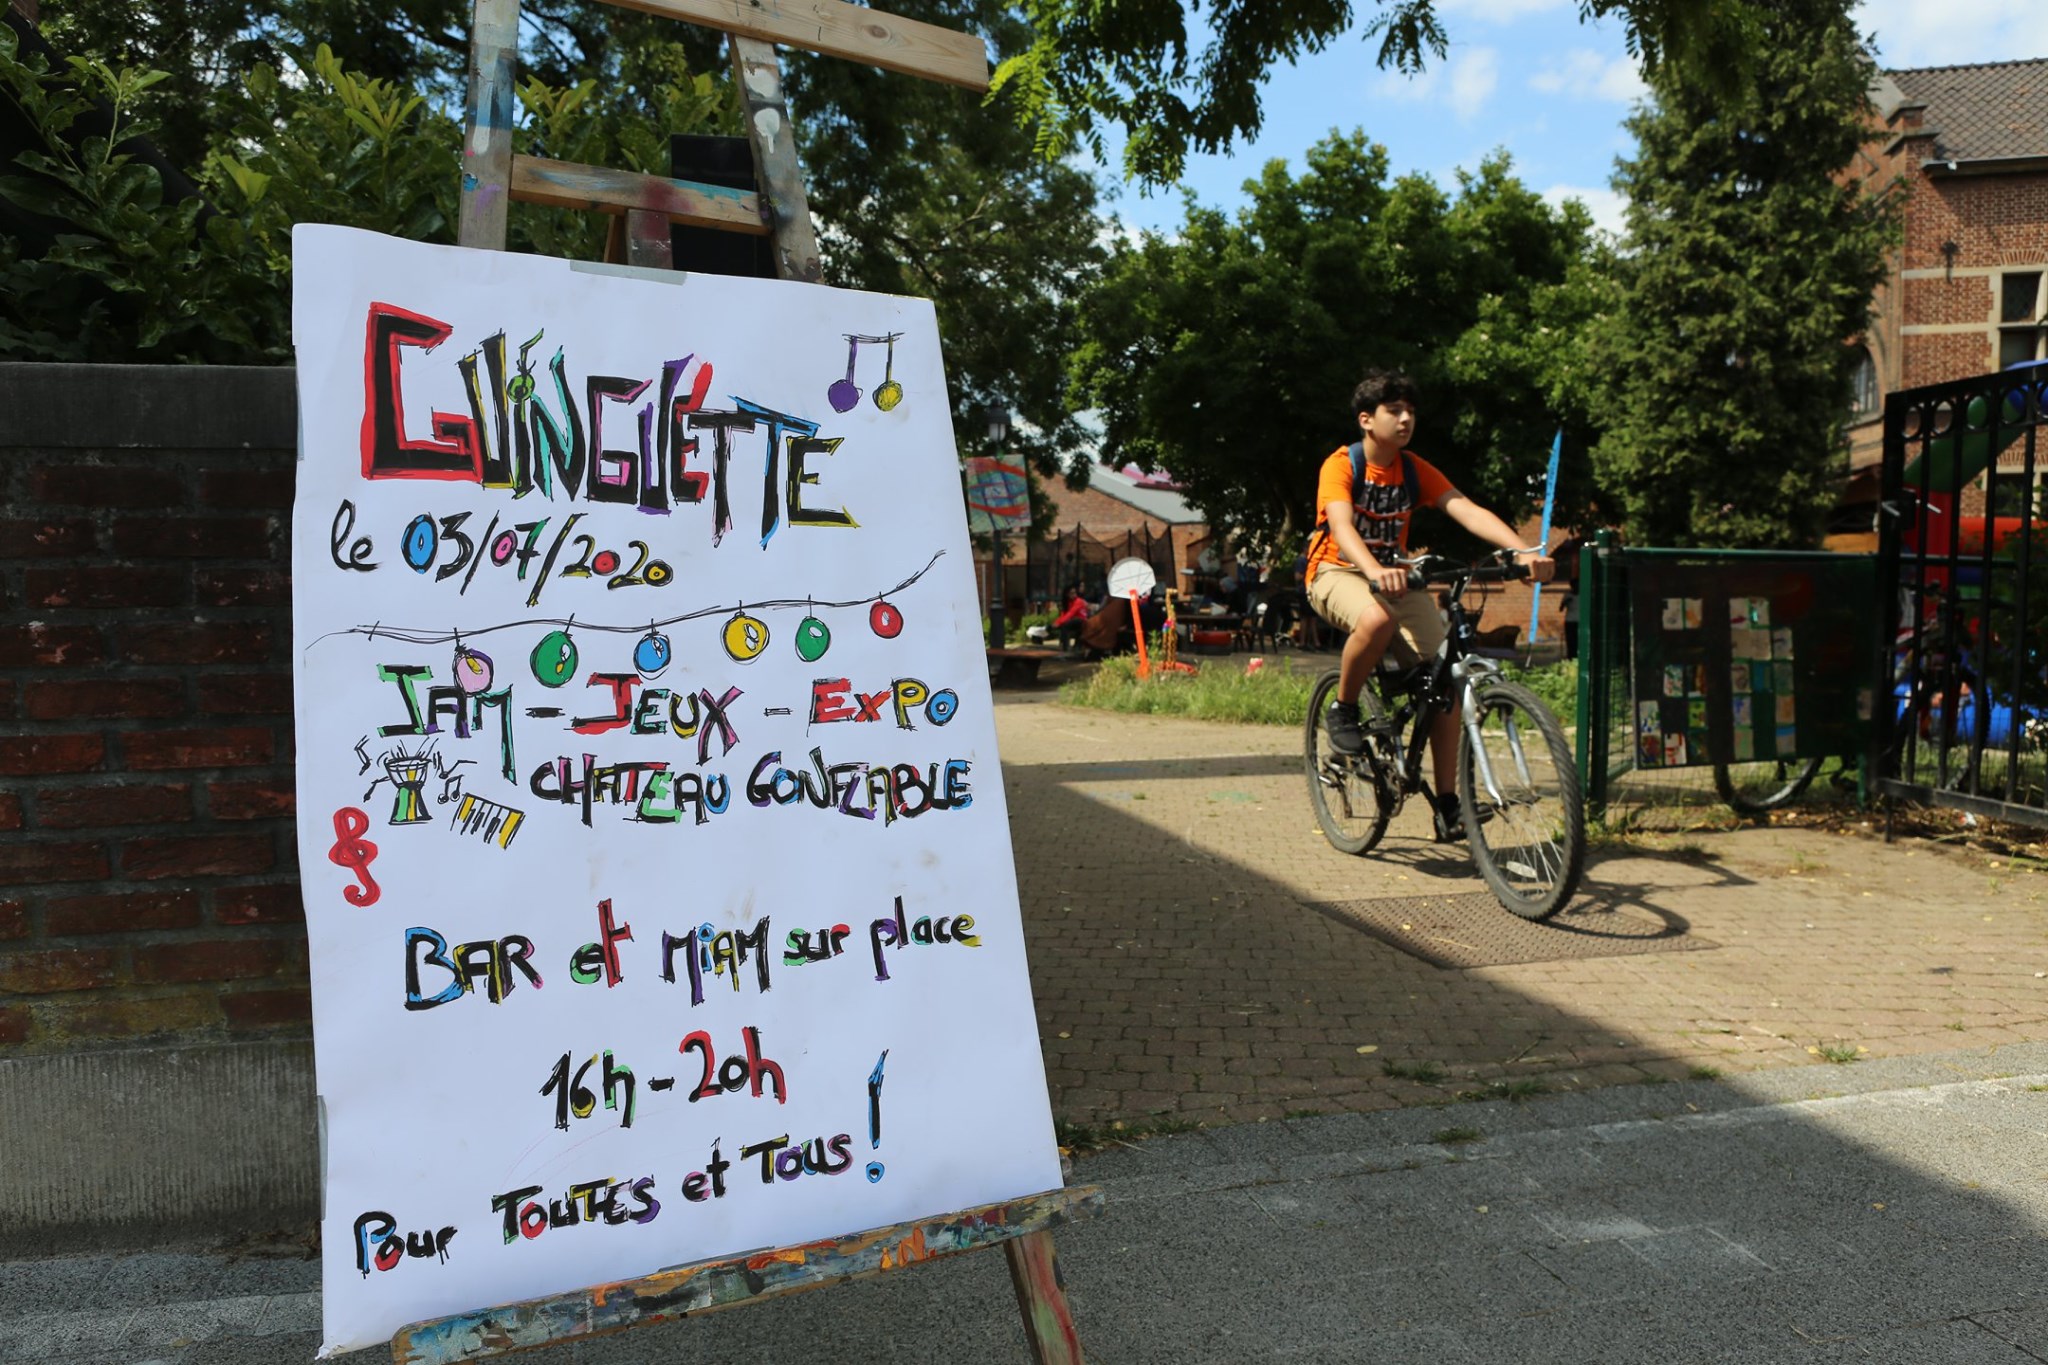 GUINGUETTE
le 03/07/2020
JAM - JEUX - EXPO
CHATEAU GONFLABLE
BAR et MIAM sur place
16h - 20h
Pour TOUTES et TOUS !